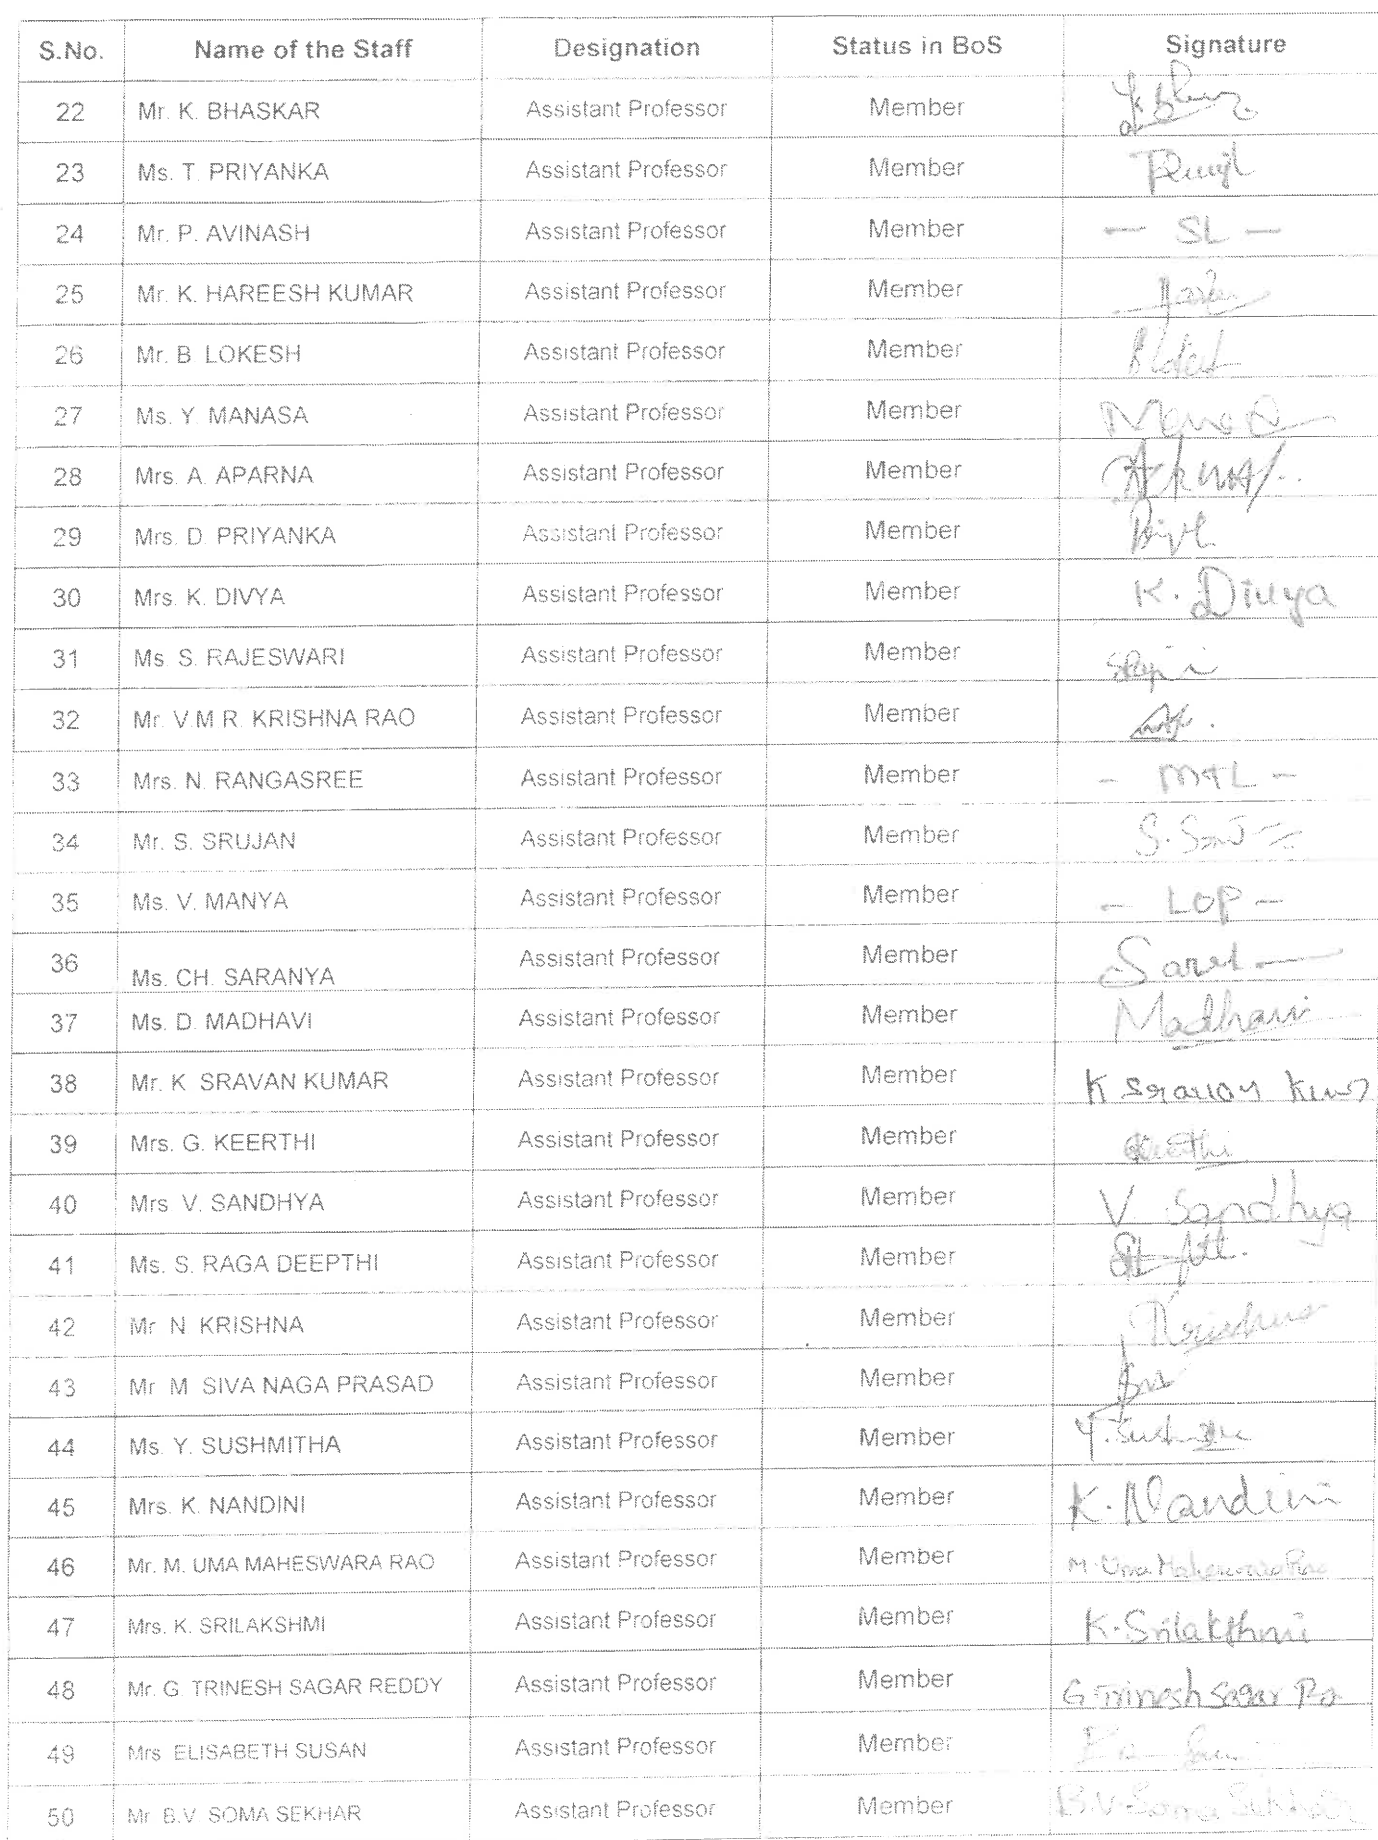 S.No. Name of the Staff Designation Status in BoS Signature
22 Mr. K. BHASKAR Assistant Professor Member
23 Ms. T. PRIYANKA Assistant Professor Member
24 Mr. P. AVINASH Assistant Professor Member — SL —
25 Mr. K. HAREESH KUMAR Assistant Professor Member
26 Mr. B LOKESH Assistant Professor Member
27 Ms. Y. MANASA Assistant Professor Member
28 Mrs. A. APARNA Assistant Professor Member
29 Mrs. D. PRIYANKA Assistant Professor Member
30 Mrs. K. DIVYA Assistant Professor Member K. Divya
31 Ms. S. RAJESWARI Assistant Professor Member
32 Mr. V.M.R. KRISHNA RAO Assistant Professor Member
33 Mrs. N. RANGASREE Assistant Professor Member - MTL -
34 Mr. S. SRUJAN Assistant Professor Member
35 Ms. V. MANYA Assistant Professor Member - LOP -
36 Ms. CH. SARANYA Assistant Professor Member
37 Ms. D. MADHAVI Assistant Professor Member Madhavi
38 Mr. K SRAVAN KUMAR Assistant Professor Member K Sravan
39 Mrs. G. KEERTHI Assistant Professor Member
40 Mrs. V. SANDHYA Assistant Professor Member V. Sandhya
41 Ms. S. RAGA DEEPTHI Assistant Professor Member
42 Mr N KRISHNA Assistant Professor Member Krishna
43 Mr M SIVA NAGA PRASAD Assistant Professor Member
44 Ms. Y. SUSHMITHA Assistant Professor Member
45 Mrs. K. NANDINI Assistant Professor Member K. Nandini
46 Mr. M. UMA MAHESWARA RAO Assistant Professor Member M. Uma Maheswara Rao
47 Mrs. K. SRILAKSHMI Assistant Professor Member K. Srilakshmi
48 Mr. G. TRINESH SAGAR REDDY Assistant Professor Member G. Trinesh Sagar
49 Mrs ELISABETH SUSAN Assistant Professor Member
50 Mr B.V. SOMA SEKHAR Assistant Professor Member B.V. Soma Sekhar